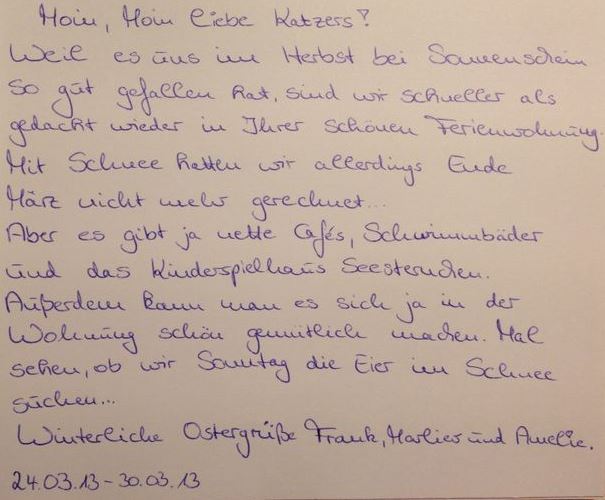 Moin, Moin liebe Katzers!
Weil es uns im Herbst bei Sonnenschein
so gut gefallen hat, sind wir schneller als
gedacht wieder in Ihrer schönen Ferienwohnung.
Mit Schnee hatten wir allerdings Ende
März nicht mehr gerechnet...
Aber es gibt ja nette Cafés, Schwimmbäder
und das Kinderspielhaus Seesternchen.
Außerdem kann man es sich ja in der
Wohnung schön gemütlich machen. Mal
sehen, ob wir Sonntag die Eier im Schnee
suchen...
Winterliche Ostergrüße Frank, Marlies und Amelie.
24.03.13-30.03.13